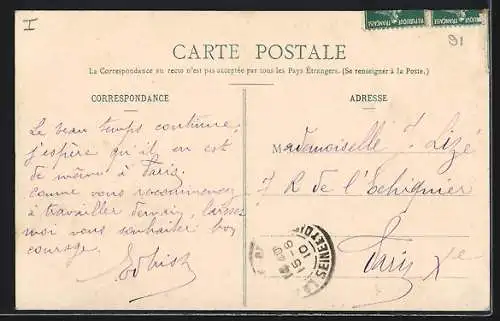 I
91
CARTE POSTALE
La Correspondance au recto n'est pas acceptée par tous les Pays Étrangers. (Se renseigner à la Poste.)
CORRESPONDANCE
Le beau temps continue,
j'espère qu'il en est
de même à Paris.
Comme vous recommencez
à travailler demain, laissez
moi vous souhaiter bon
courage.
ADRESSE
Mademoiselle J. Lizé
7 R de l'Echiquier
Paris Xe
REPUBLIQUE FRANÇAISE
REPUBLIQUE FRANÇAISE
SEINE ET OISE